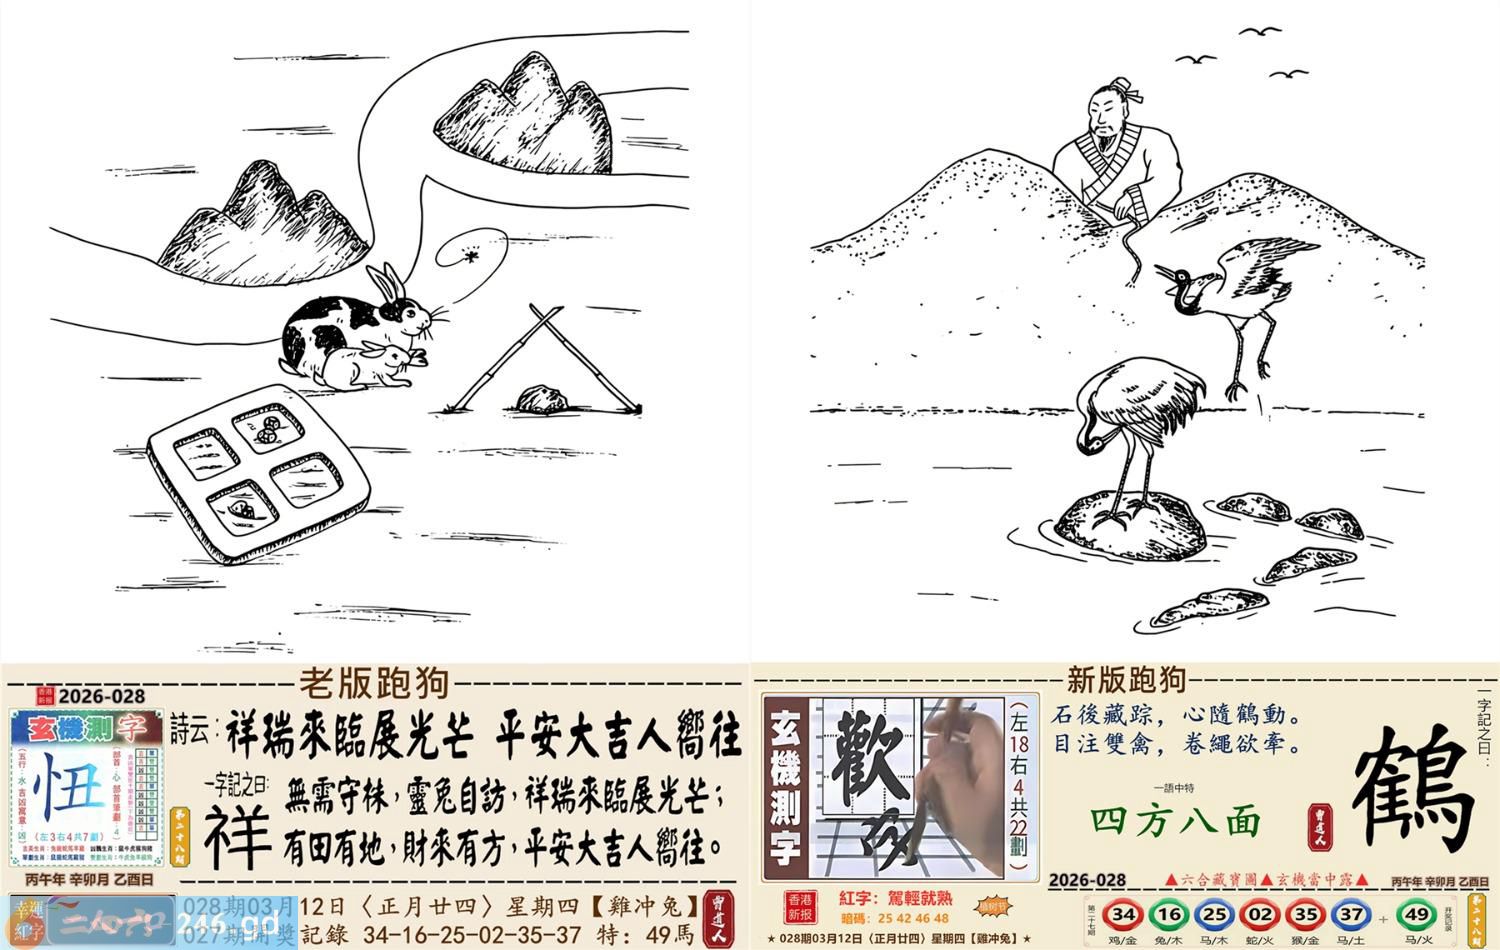 老版跑狗
香港
新报
2026-028
玄機測字
忸
(五行:水 吉凶寓意:凶)
(部首:心 部首筆劃:4)
(左3右4共7劃)
丙午年 辛卯月 乙酉日
第二十八期
詩云:祥瑞來臨展光芒 平安大吉人嚮往
一字記之曰:
祥
無需守株,靈兔自訪,祥瑞來臨展光芒;
有田有地,財來有方,平安大吉人嚮往。
幸運
紅字
二四六
246.gd
028期03月12日〈正月廿四〉星期四【雞冲兔】
027期開獎記錄 34-16-25-02-35-37 特:49馬
曾道人
新版跑狗
玄機測字
歡
(左18右4共22劃)
石後藏踪,心隨鶴動。
目注雙禽,卷繩欲牽。
一語中特
四方八面
曾道人
一字記之曰:
鶴
2026-028
▲六合藏寶圖▲玄機當中露▲
丙午年 辛卯月 乙酉日
香港
新报
紅字:駕輕就熟
暗碼:25 42 46 48
植树节
★ 028期03月12日〈正月廿四〉星期四【雞冲兔】★
第二十七期
34 16 25 02 35 37 + 49
鸡/金 兔/木 马/木 蛇/火 猴/金 马/土 马/火
开奖记录
第二十八期